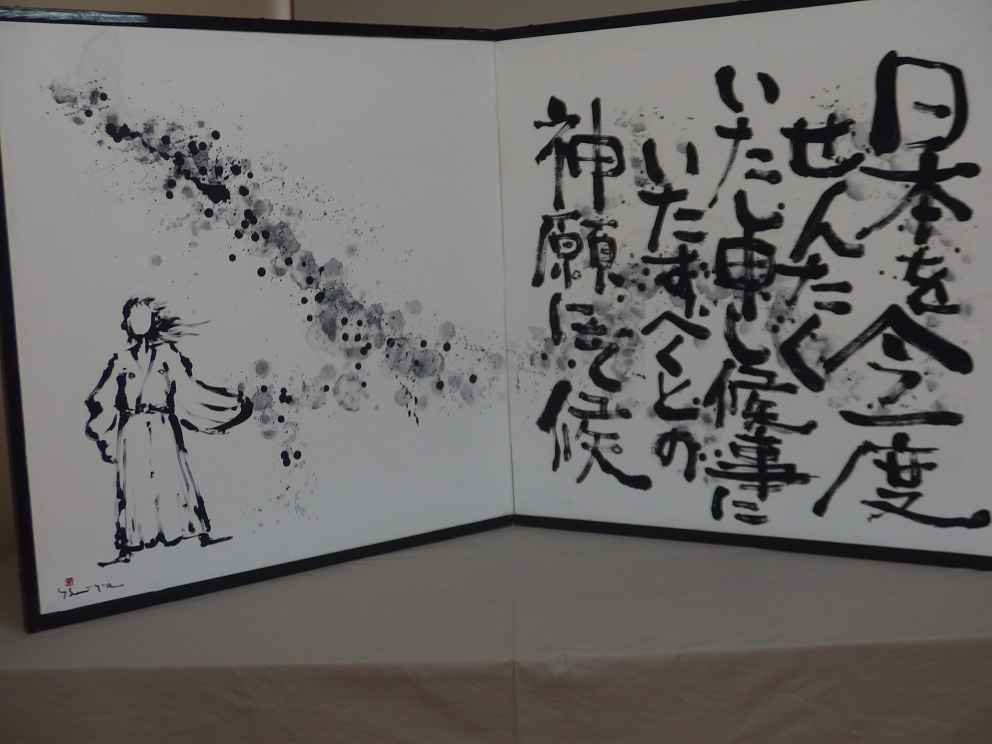 日本を今一度
せんたく
いたし申し候事に
いたすべくとの
神願にて候